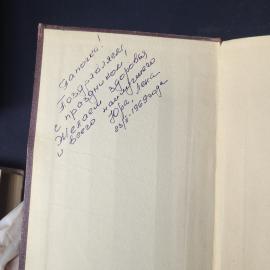 Папочка!
Поздравляем
с праздником,
Желаем здоровья
и всего наилучшего
Юра, Лена
23/II-1969 года